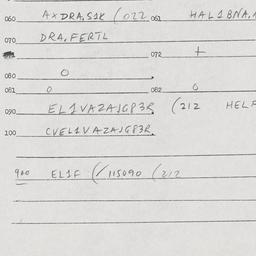 060 AXDRA,S1K (022 061 HAL1BNA,
070 DRA,FERTL
072 +
080 0
081 0 082 0
090 EL1VAZAJGP3R (212 HELF
100 CVEL1VAZAJGP3R
900 EL1F (/115090 (212